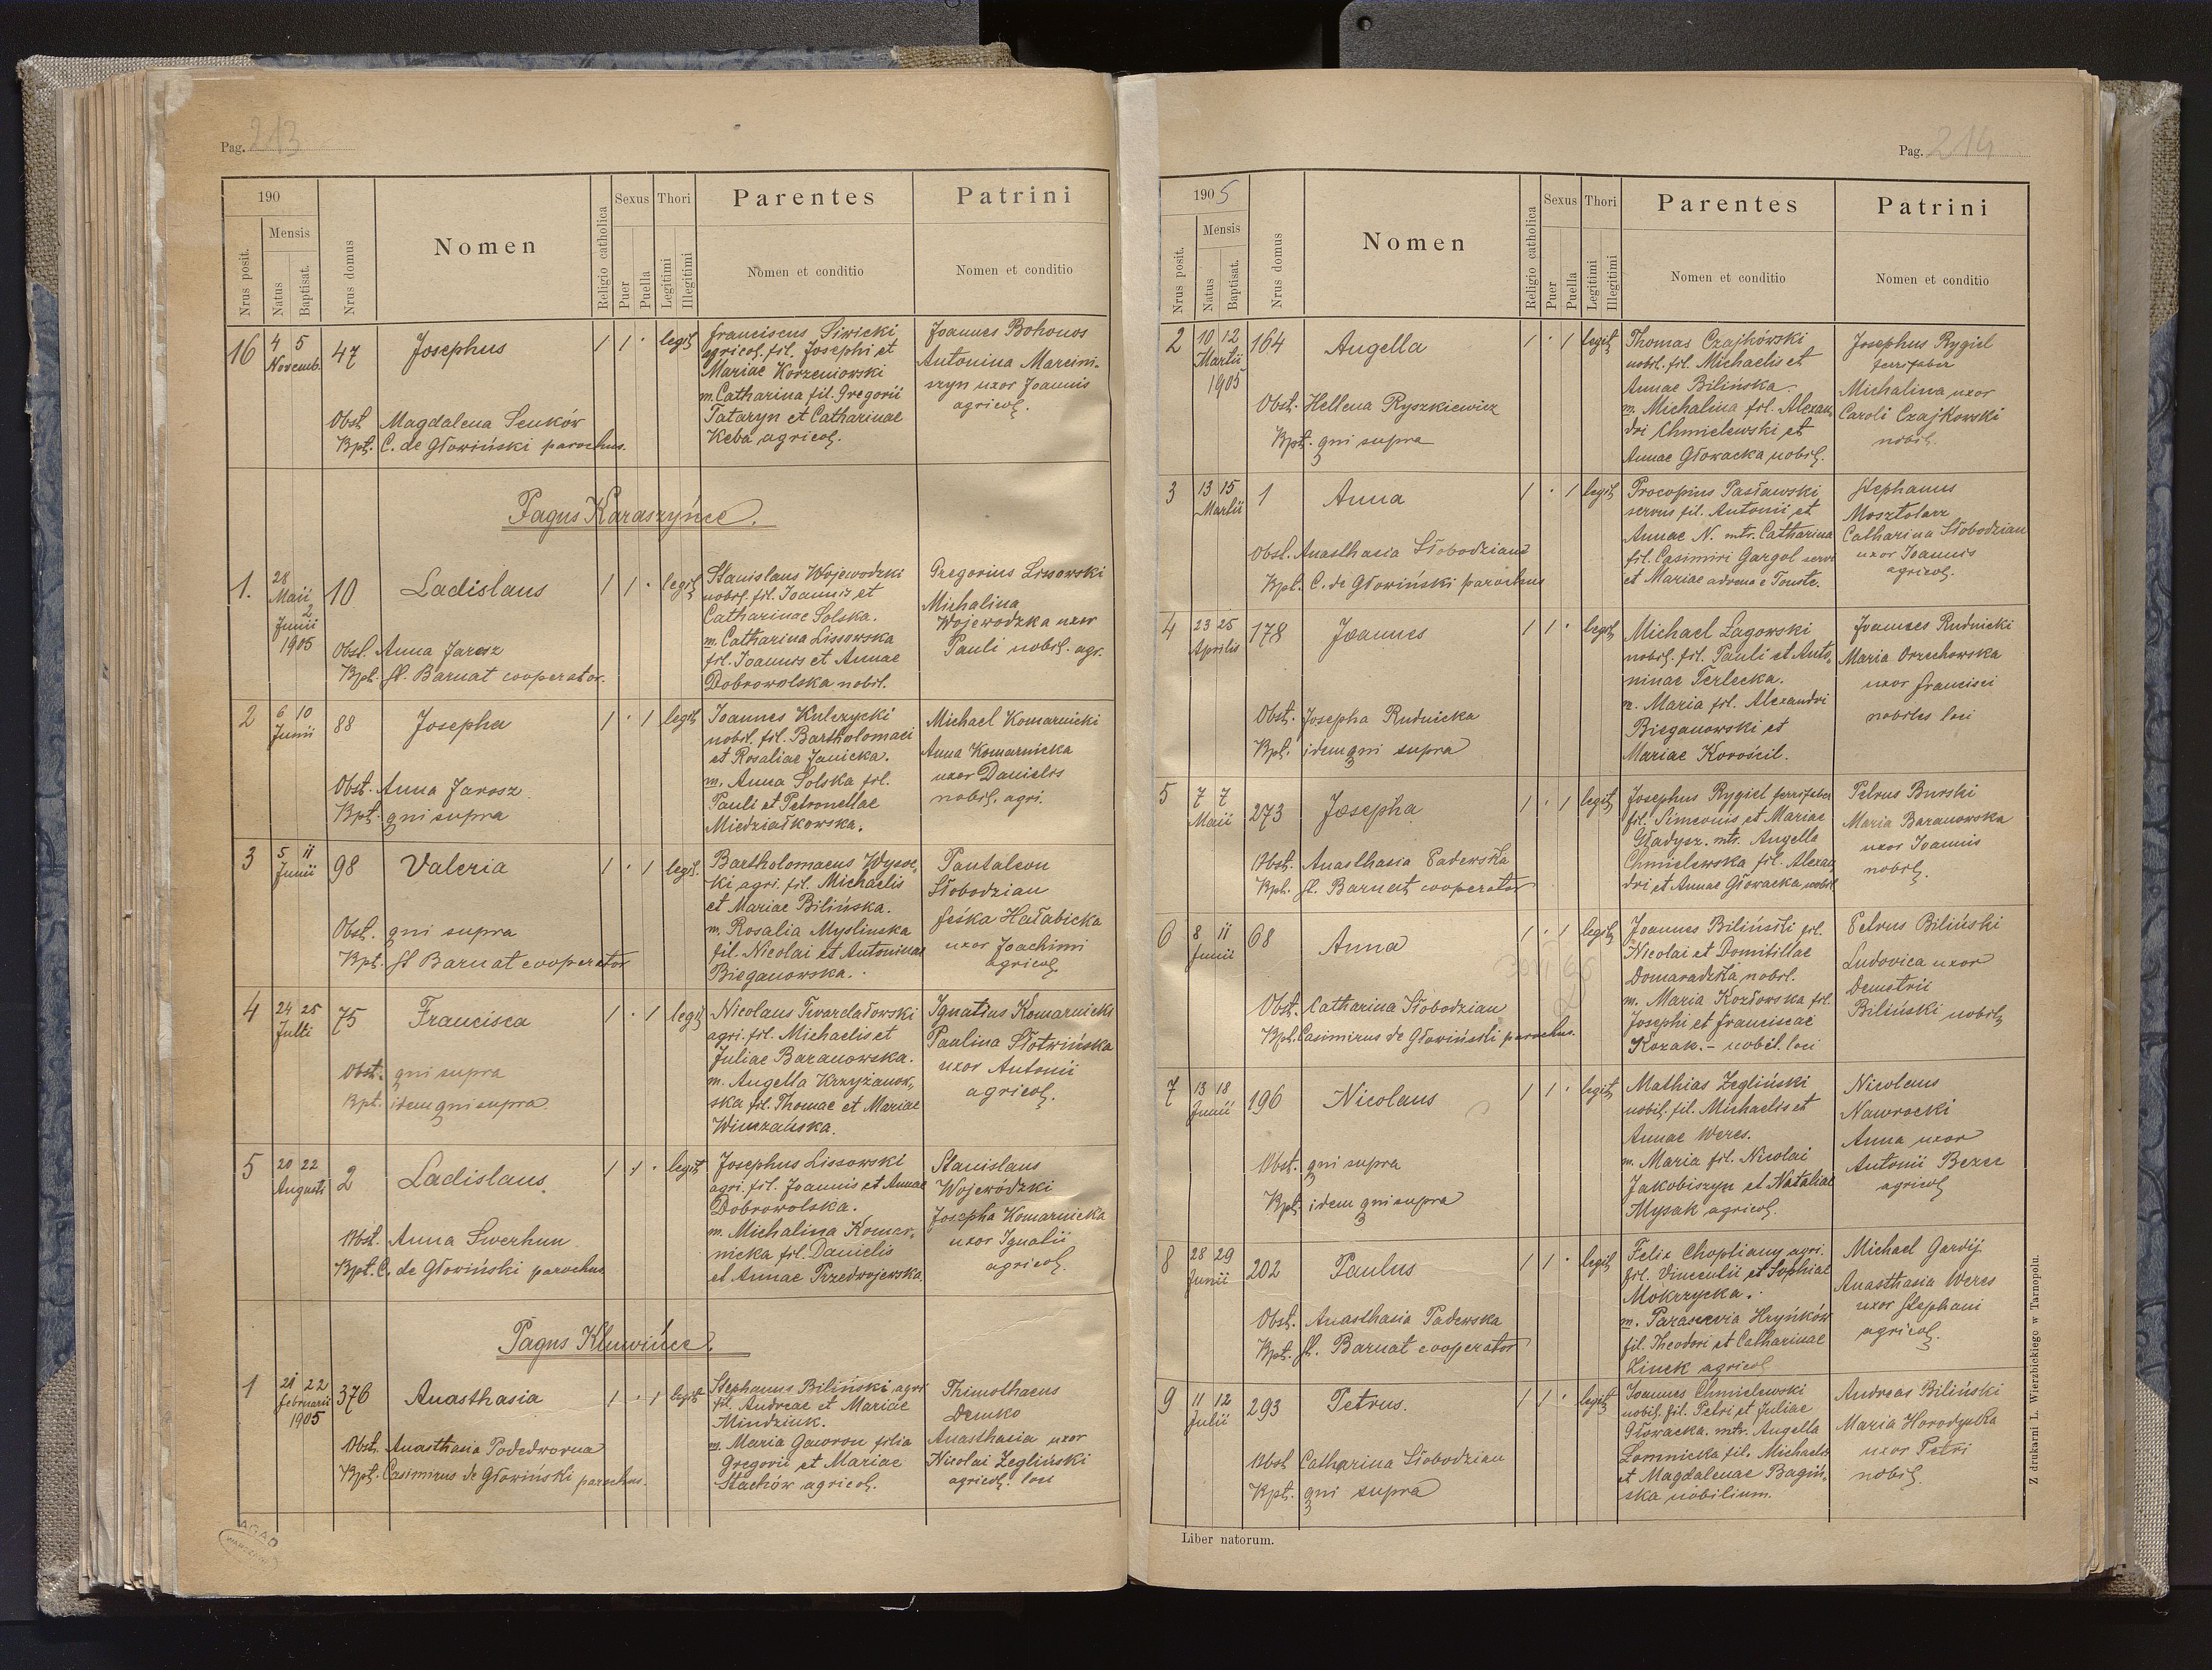 Pag. 213
190
Nrus posit.
Mensis
Natus
Baptisat.
Nrus domus
Nomen
Religio catholica
Sexus
Puer
Puella
Thori
Legitimi
Illegitimi
Parentes
Nomen et conditio
Patrini
Nomen et conditio
16
4 5
Novemb.
47
Josephus
1 1 · legit.
Franciscus Siwicki
agricol. fil. Josephi et
Mariae Korzeniowski
m. Catharina fil. Gregorii
Tataryn et Catharinae
Keba agricol.
Joannes Bohonos
Antonina Marcini-
szyn uxor Joannis
agricol.
Obst. Magdalena Seńków
Bpt. C. de Głowiński parochus.
Pagus Karaszyńce.
1.
28
Maii
2
Junii
1905
10
Ladislaus
1 1 · legit
Stanislaus Wojewodzki
nobil. fil. Joannis et
Catharinae Solska.
m. Catharina Lissowska
fil. Joannis et Annae
Dobrowolska nobil.
Gregorius Lissowski
Michalina
Wojewodzka uxor
Pauli nobil. agr.
Obst. Anna Jarosz
Bpt. St. Barnat cooperator.
2
6 10
Junii
88
Josepha
1 · 1 legit
Joannes Kulczycki
nobil. fil. Bartholomaei
et Rosaliae Janicka.
m. Anna Solska fil.
Pauli et Petronellae
Miedziałkowska.
Michael Komarnicki
Anna Komarnicka
uxor Danielis
nobil. agri.
Obst. Anna Jarosz
Bpt. qui supra
3
5 11
Junii
98
Valeria
1 · 1 legit.
Bartholomaeus Wysoc-
ki agri. fil. Michaelis
et Mariae Bilińska.
m. Rosalia Myslinska
fil. Nicolai et Antoninae
Bieganowska.
Pantaleon
Słobodzian
Feśka Hałabicka
uxor Joachimi
agricol.
Obst. qui supra
Bpt. St Barnat cooperator
4
24 25
Julii
75
Francisca
1 · 1 legit
Nicolaus Twardałowski
agri. fil. Michaelis et
Juliae Baranowska.
m. Angella Krzyżanow-
ska fil. Thomae et Mariae
Winczańska.
Ignatius Komarnicki
Paulina Słotwińska
uxor Antonii
agricol.
Obst. qui supra
Bpt. idem qui supra
5
20 22
Augusti
2
Ladislaus
1 1 · legit
Josephus Lissowski
agri. fil. Joannis et Annae
Dobrowolska.
m. Michalina Komar-
nicka fil. Danielis
et Annae Przedwojewska
Stanislaus
Wojewódzki
Josepha Komarnicka
uxor Ignatii
agricol.
Obst. Anna Swerhun
Bpt. C. de Głowiński parochus
Pagus Kluwińce.
1
21 22
Februarii
1905
376
Anasthasia
1 · 1 legit
Stephanus Biliński agri
fil. Andreae et Mariae
Mindziuk.
m. Maria Gawron filia
Gregorii et Mariae
Stachów agricol.
Thimothaeus
Demko
Anasthasia uxor
Nicolai Zegliński
agricol. loci
Obst. Anasthasia Podedworna
Bpt. Casimirus de Głowiński parochus.
Pag. 214
1905
Nrus posit.
Mensis
Natus
Baptisat.
Nrus domus
Nomen
Religio catholica
Sexus
Puer
Puella
Thori
Legitimi
Illegitimi
Parentes
Nomen et conditio
Patrini
Nomen et conditio
2
10 12
Martii
1905
164
Angella
1 · 1 legit
Thomas Czajkówski
nobil. fil. Michaelis et
Annae Bilińska.
m. Michalina fil. Alexan-
dri Chmielewski et
Annae Głowacka nobil.
Josephus Rygiel
ferrifaber
Michalina uxor
Caroli Czajkowski
nobil.
Obst. Hellena Ryszkiewicz
Bpt. qui supra
3
13 15
Martii
1
Anna
1 · 1 legit
Procopius Pasławski
servus fil. Antonii et
Annae N. mtr. Catharina
fil. Casimiri Gargol servi
et Mariae advena e Touste.
Stephanus
Mosztolarz
Catharina Słobodzian
uxor Joannis
agricol.
Obst. Anasthasia Słobodzian
Bpt. C. de Głowiński parochus
4
23 25
Aprilis
178
Joannes
1 1 · legit
Michael Łagowski
nobil. fil. Pauli et Anto-
ninae Terlecka.
m. Maria fil. Alexandri
Bieganowski et
Mariae Korościl.
Joannes Rudnicki
Maria Orzechowska
uxor Francisci
nobiles loci
Obst. Josepha Rudnicka
Bpt. idem qui supra
5
7 7
Maii
273
Josepha
1 · 1 legit
Josephus Rygiel ferrifaber
fil. Simeonis et Mariae
Gładysz. mtr. Angella
Chmielewska fil. Alexan
dri et Annae Głowacka nobil
Petrus Burski
Maria Baranowska
uxor Joannis
nobil.
Obst. Anasthasia Padewska
Bpt. St. Barnat cooperator
6
8 11
Junii
68
Anna
1 · 1 legit
Joannes Biliński fil.
Nicolai et Domitillae
Domaradzka nobil.
m. Maria Kozłowska fil.
Josephi et Franciscae
Kozak. - nobil. loci
Petrus Biliński
Ludovica uxor
Demetrii
Biliński nobil
Obst. Catharina Słobodzian
Bpt. Casimirus de Głowiński parochus.
7
13 18
Junii
196
Nicolaus
1 1 · legit
Mathias Zegliński
nobil. fil. Michaelis et
Annae Weres.
m. Maria fil. Nicolai
Jakobiszyn et Nataliae
Mysak agricol.
Nicolaus
Nawrocki
Anna uxor
Antonii Bezec
agricol
Obst. qui supra
Bpt. idem qui supra
8
28 29
Junii
202
Paulus
1 1 · legit
Felix Choptiany agri.
fil. Vincentii et Sophiae
Mokrzycka.
m. Parascevia Hryńków
fil. Theodori et Catharinae
Linek agricol
Michael Gardij
Anasthasia Weres
uxor Stephani
agricol.
Obst. Anasthasia Padewska
Bpt. St. Barnat cooperator
9
11 12
Julii
293
Petrus.
1 1 · legit
Joannes Chmielewski
nobil. fil. Petri et Juliae
Głowacka. mtr. Angella
Łomnicka fil. Michaelis
et Magdalenae Bagiń-
ska nobilium.
Andreas Biliński
Maria Horodyska
uxor Petri
nobil.
Obst Catharina Słobodzian
Bpt. qui supra
Liber natorum.
Z drukarni L. Wierzbickiego w Tarnopolu.
AGAD
WARSZAWA